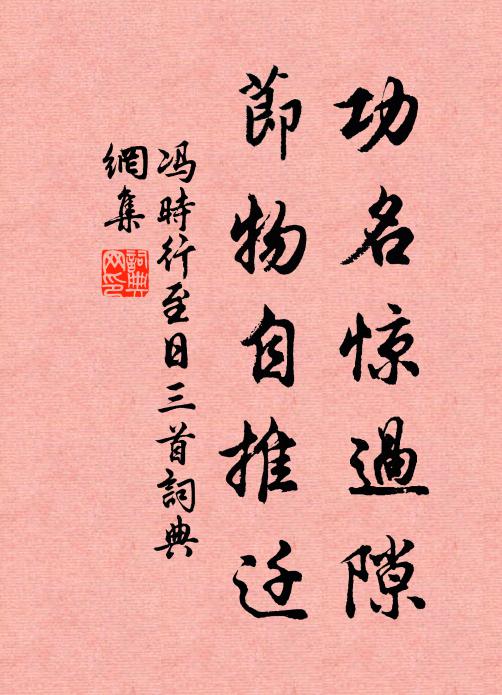 功名惊過隙
節物自推迁
冯時行至日三首詞典
網集
詞典网印